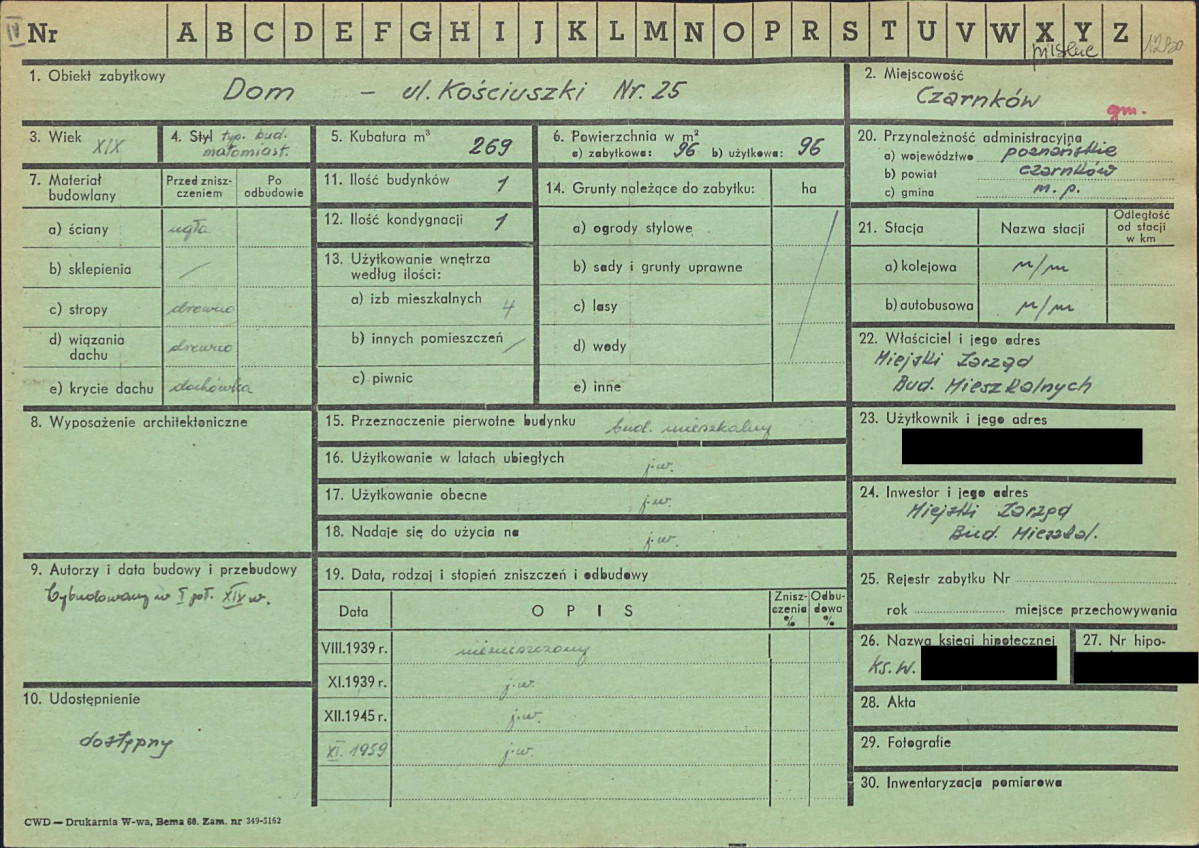 IV Nr A B C D E F G H I J K L M N O P R S T U V W X Y Z
1. Obiekt zabytkowy
Dom – ul. Kościuszki Nr. 25
2. Miejscowość
Czarnków
gm.
3. Wiek XIX
4. Styl typ. bud.
małomiast.
5. Kubatura m³ 269
6. Powierzchnia w m²
a) zabytkowa: 96 b) użytkowa: 96
20. Przynależność administracyjna
a) województwo poznańskie
b) powiat czarnków
c) gmina m. p.
7. Materiał budowlany
Przed zniszczeniem
Po odbudowie
a) ściany cegła
b) sklepienia /
c) stropy drewno
d) wiązania dachu drewno
e) krycie dachu dachówka
11. Ilość budynków 1
12. Ilość kondygnacji 1
13. Użytkowanie wnętrza
według ilości:
a) izb mieszkalnych 4
b) innych pomieszczeń /
c) piwnic
14. Grunty należące do zabytku: ha
a) ogrody stylowe
b) sady i grunty uprawne
c) lasy
d) wody
e) inne
21. Stacja Nazwa stacji Odległość
od stacji
w km
a) kolejowa n/m
b) autobusowa n/m
22. Właściciel i jego adres
Miejski Zarząd
Bud. Mieszkalnych
8. Wyposażenie architektoniczne
15. Przeznaczenie pierwotne budynku bud. mieszkalny
16. Użytkowanie w latach ubiegłych j.w.
17. Użytkowanie obecne j.w.
18. Nadaje się do użycia na j.w.
23. Użytkownik i jego adres
24. Inwestor i jego adres
Miejski Zarząd
Bud. Mieszkal.
9. Autorzy i data budowy i przebudowy
Wybudowany w I poł. XIX w.
19. Data, rodzaj i stopień zniszczeń i odbudowy
Data OPIS Zniszczenia % Odbudowa %
VIII.1939 r. niezniszczony
XI.1939 r. j.w.
XII.1945 r. j.w.
XI. 1959 j.w.
25. Rejestr zabytku Nr
rok miejsce przechowywania
26. Nazwa księgi hipotecznej
Ks. W.
27. Nr hipo-
10. Udostępnienie
dostępny
28. Akta
29. Fotografie
30. Inwentaryzacja pomiarowa
CWD — Drukarnia W-wa, Bema 60. Zam. nr 349-5162